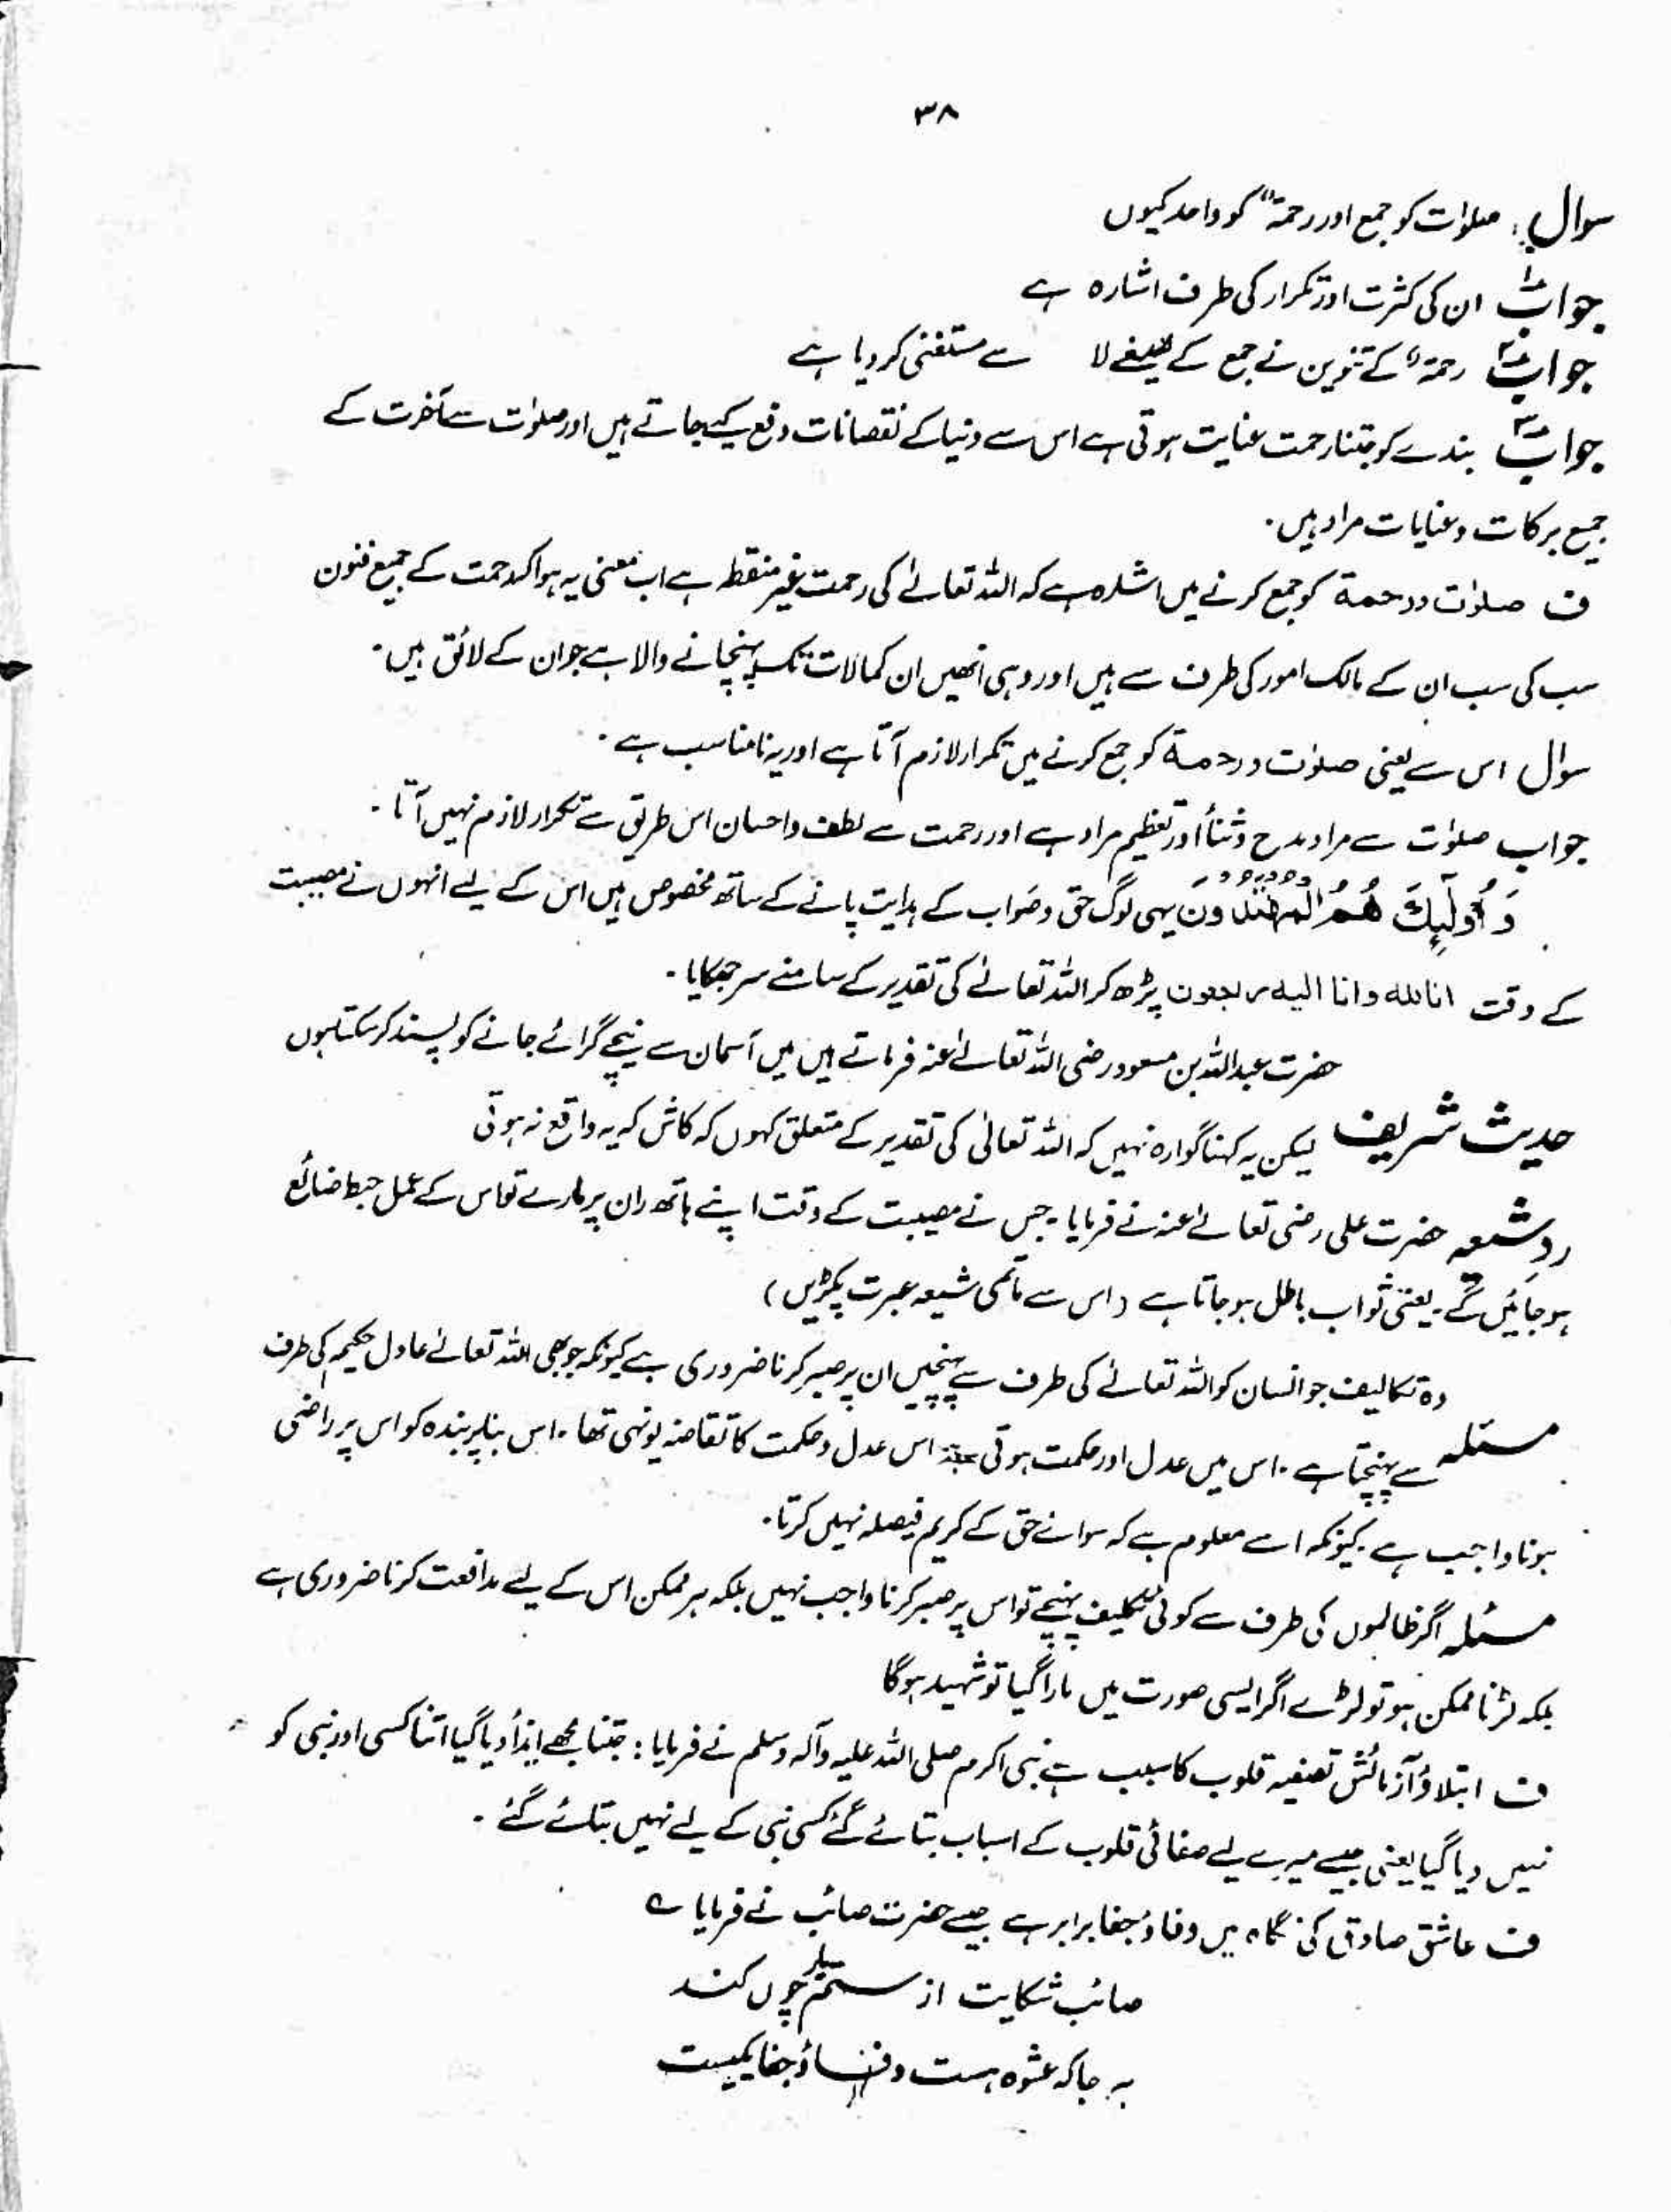 ۳۸
سوال: صلوٰت کو جمع اور رحمۃ" کو واحد کیوں
جواب۱ ان کی کثرت اور تکرار کی طرف اشارہ ہے
جواب۲ رحمۃ" کے تنوین نے جمع کے صیغے لا سے مستغنی کر دیا ہے
جواب۳ بندے کو جتنا رحمت عنایت ہوتی ہے اس سے دنیا کے نقصانات دفع کیے جاتے ہیں اور صلوٰت سے آخرت کے
جمیع برکات و عنایات مراد ہیں۔
ف صلوٰت و رحمۃ کو جمع کرنے میں اشارہ ہے کہ اللہ تعالےٰ کی رحمت غیر منقطہ ہے اب معنی یہ ہوا کہ رحمت کے جمیع فنون
سب کی سب ان کے مالک امور کی طرف سے ہیں اور وہی انھیں ان کمالات تک پہنچانے والا ہے جو ان کے لائق ہیں۔
سوال اس سے یعنی صلوٰت و رحمۃ کو جمع کرنے میں تکرار لازم آتا ہے اور یہ نامناسب ہے۔
جواب صلوٰت سے مراد مدح و ثنأ اور تعظیم مراد ہے اور رحمت سے لطف و احسان اس طریق سے تکرار لازم نہیں آتا۔
وَ اُولٰٓئِكَ هُمُ الْمُهْتَدُوْنَ یہی لوگ حق و صَواب کے ہدایت پانے کے ساتھ مخصوص ہیں اس کے لیے انہوں نے مصیبت
کے وقت انا للہ و انا الیہ راجعون پڑھ کر اللہ تعالےٰ کی تقدیر کے سامنے سر جھکایا۔
حضرت عبداللہ بن مسعود رضی اللہ تعالےٰ عنہ فرماتے ہیں میں آسمان سے نیچے گرائے جانے کو پسند کر سکتا ہوں
حدیث شریف لیکن یہ کہنا گوارہ نہیں کہ اللہ تعالیٰ کی تقدیر کے متعلق کہوں کہ کاش کہ یہ واقع نہ ہوتی
ردِ شیعہ حضرت علی رضی تعالےٰ عنہ نے فرمایا۔ جس نے مصیبت کے وقت اپنے ہاتھ ران پر مارے تو اس کے عمل حبط ضائع
ہو جائیں گے۔ یعنی ثواب باطل ہو جاتا ہے (اس سے ماتمی شیعہ عبرت پکڑیں)
وہ تکالیف جو انسان کو اللہ تعالےٰ کی طرف سے پہنچیں ان پر صبر کرنا ضروری ہے کیونکہ جو بھی اللہ تعالےٰ عادل حکیم کی طرف
مسئلہ سے پہنچتا ہے۔ اس میں عدل اور حکمت ہوتی ہے اس عدل و حکمت کا تقاضہ یونہی تھا۔ اس بنا پر بندہ کو اس پر راضی
ہونا واجب ہے۔ کیونکہ اسے معلوم ہے کہ سوائے حق کے کریم فیصلہ نہیں کرتا۔
مسئلہ اگر ظالموں کی طرف سے کوئی تکلیف پہنچے تو اس پر صبر کرنا واجب نہیں بلکہ ہر ممکن اس کے لیے مدافعت کرنا ضروری ہے
بلکہ لڑنا ممکن ہو تو لڑے اگر ایسی صورت میں مارا گیا تو شہید ہوگا
ف ابتلاؤ آزمائش تصفیہ قلوب کا سبب ہے نبی اکرم صلی اللہ علیہ وآلہ وسلم نے فرمایا: جتنا مجھے ایذأ دیا گیا اتنا کسی اور نبی کو
نہیں دیا گیا یعنی جیسے میرے لیے صفائی قلوب کے اسباب بنائے گئے کسی نبی کے لیے نہیں بنائے گئے۔
ف عاشق صادق کی نگاہ میں وفاؤ جفا برابر ہے جیسے حضرت صائب نے فرمایا ے
صائب شکایت از ستم یار چوں کند
ہر جا کہ عشوہ ہست وفاؤ جفا یکیست